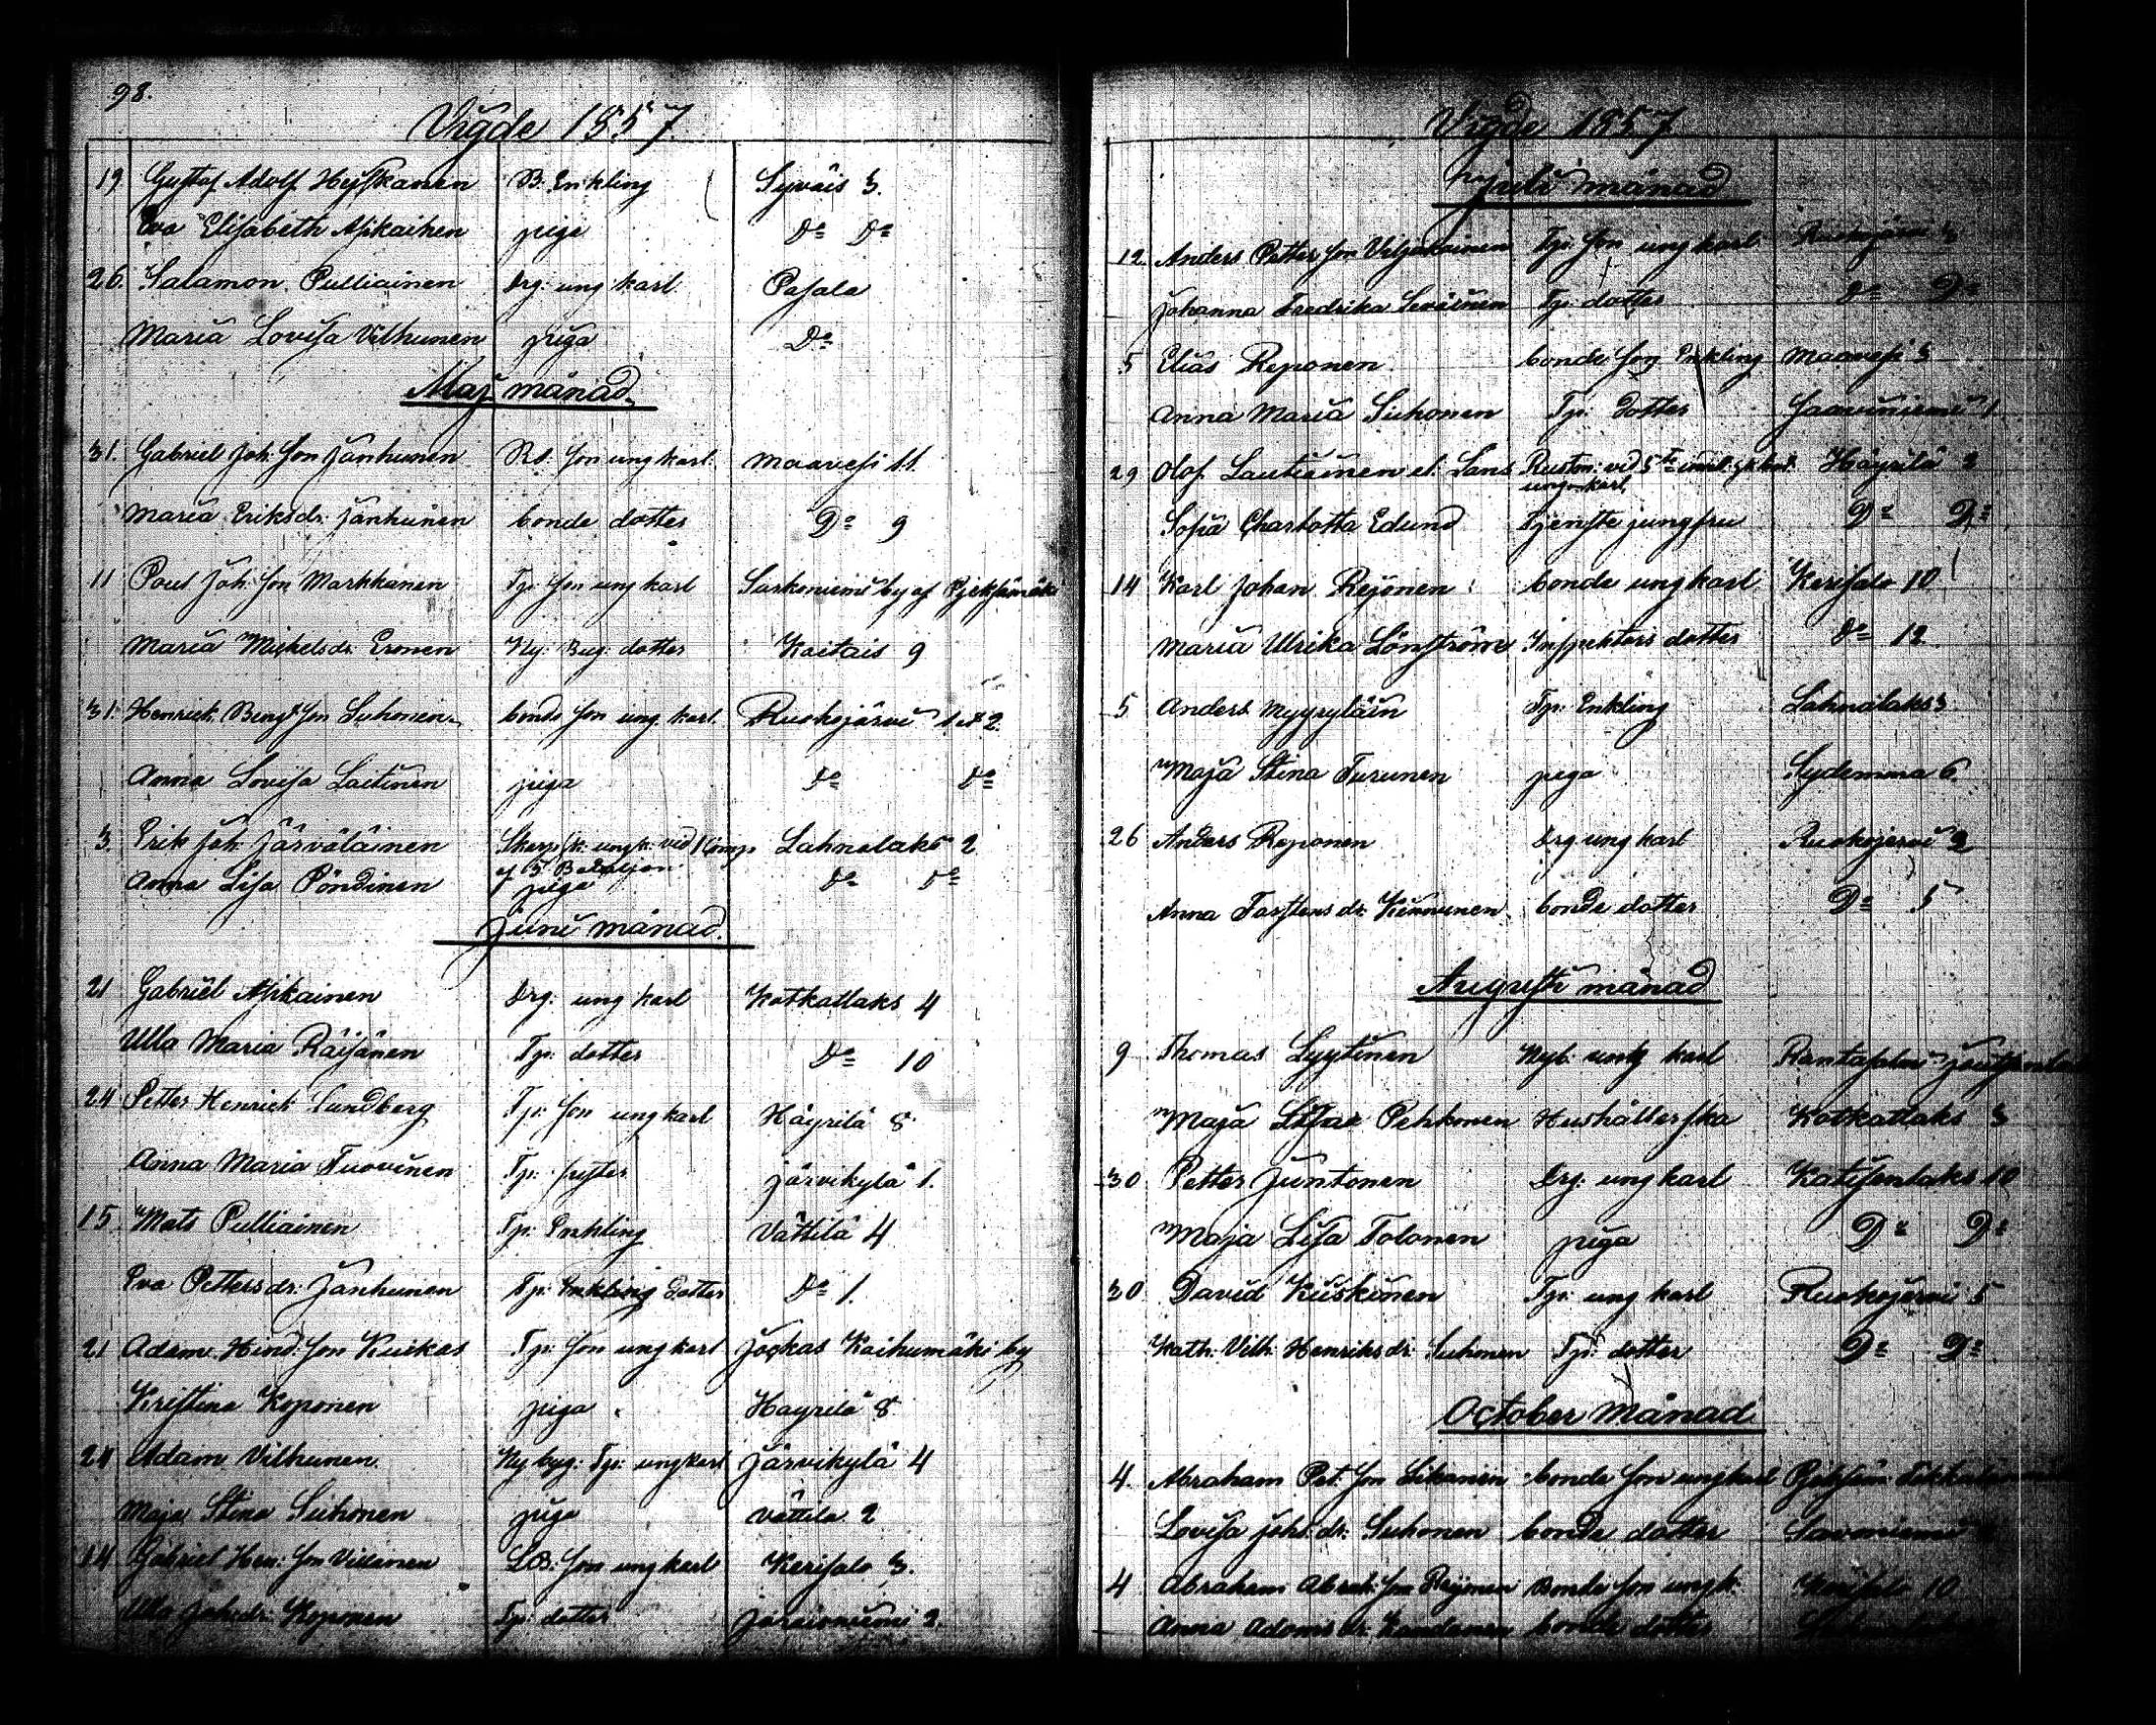 98.
Vigde 1857
19 Gustaf Adolf Hyfkanen B. Enkling Syväis 3.
Eva Elisabeth Asikainen piga Do Do
26. Salamon Pulliainen Drg: ung karl. Pasala
Maria Lovisa Vilhunen piga Do
Maj månad
31. Gabriel Joh: son Janhunen Rd. son ung karl. Maavesi 11.
Maria Eriksdr. Janhunen bonde dotter Do 9
11 Poul Joh: son Markkanen Tp: son ung karl by af Pjeksämäki
Maria Mickelsdr. Eronen Ny: Byg: dotter Kaitais 9
31. Henrick Bengt son Suhonen bonde son ung karl. Ruokojärvi 1 et 2.
Anna Lovisa Laitinen piga Do Do
3. Erik Joh: Järväläinen Skarpsk: ungk: vid 1 Comp. Lahnalaks 2
af 5 Bataljon
Anna Lisa Pöndinen piga Do Do
Juni månad.
21 Gabriel Asikainen Drg: ung karl Kotkatlaks 4
Ulla Maria Räisänen Tp: dotter Do 10
24 Petter Henrick Lundberg Tp: son ung karl Häyrilä 8
Anna Maria Tuovinen Tp: syster Järvikylä 1.
15. Mats Pulliainen Tp: Enkling Vättilä 4
Eva Pettersdr: Janhunen Tp: Enkling dotter Do 1.
21 Adam Hind: son Kuikas Tp: son ung karl Jockas Kaihumäki by
Kristina Koponen piga Hayrilä 8
24 Adam Vilhunen Ny byg: Tp: ung karl Järvikylä 4
Maja Stina Suhonen piga Vättila 2
14 Gabriel Hen: son Vilänen LB: son ung karl Kerisalo 3.
Ulla Joh: dr: Koponen Tp: dotter 2.
Vigde 1857
Juli månad
12. Anders Petter son Viljakainen Tp: son ung karl Ruokojärvi 3
Johanna Fredrika Tp: dotter Do Do
5 Elias Reponen bonde son Enkling Maavesi 3
Anna Maria Suhonen Tp. dotter 1.
29 Olof Lautiainen el. Lans vid 5te Häyrilä 2
ung karl
Sofia Charlotta Edund Tjenste jungfru Do Do
14 Karl Johan Rejonen bonde ung karl Kerisalo 10
Maria Ulrika Lönström Inspektors dotter Do 12
5 Anders Myyryläin Tp: Enkling Lahnalaks 3
Maja Stina Turunen piga Sydenmaa 6
26 Anders Reponen Drg ung karl Ruokojervi 2
Anna Torstens dr. Kinnunen bonde dotter Do 5
Augusti månad
9 Thomas Lyytinen Nyb: ung karl Rantasalmi
Maja Lisa Pehkonen Hushållerska Kotkatlaks 3
30 Petter Juntonen Drg: ung karl Katisenlaks 10
Maja Lisa Tolonen piga Do Do
30 David Kiiskinen Tp: ung karl Ruokojervi 5
Kath: Vilh: Henriksdr: Suhonen Tp: dotter Do Do
October Månad
4. Abraham Pet: son Likanen bonde son ung karl
Lovisa Joh: dr: Suhonen bonde dotter
4 Abraham Abrah: son Reijonen Bonde son ungk: Kerisalo 10
Anna Adams dr. bonde dotter